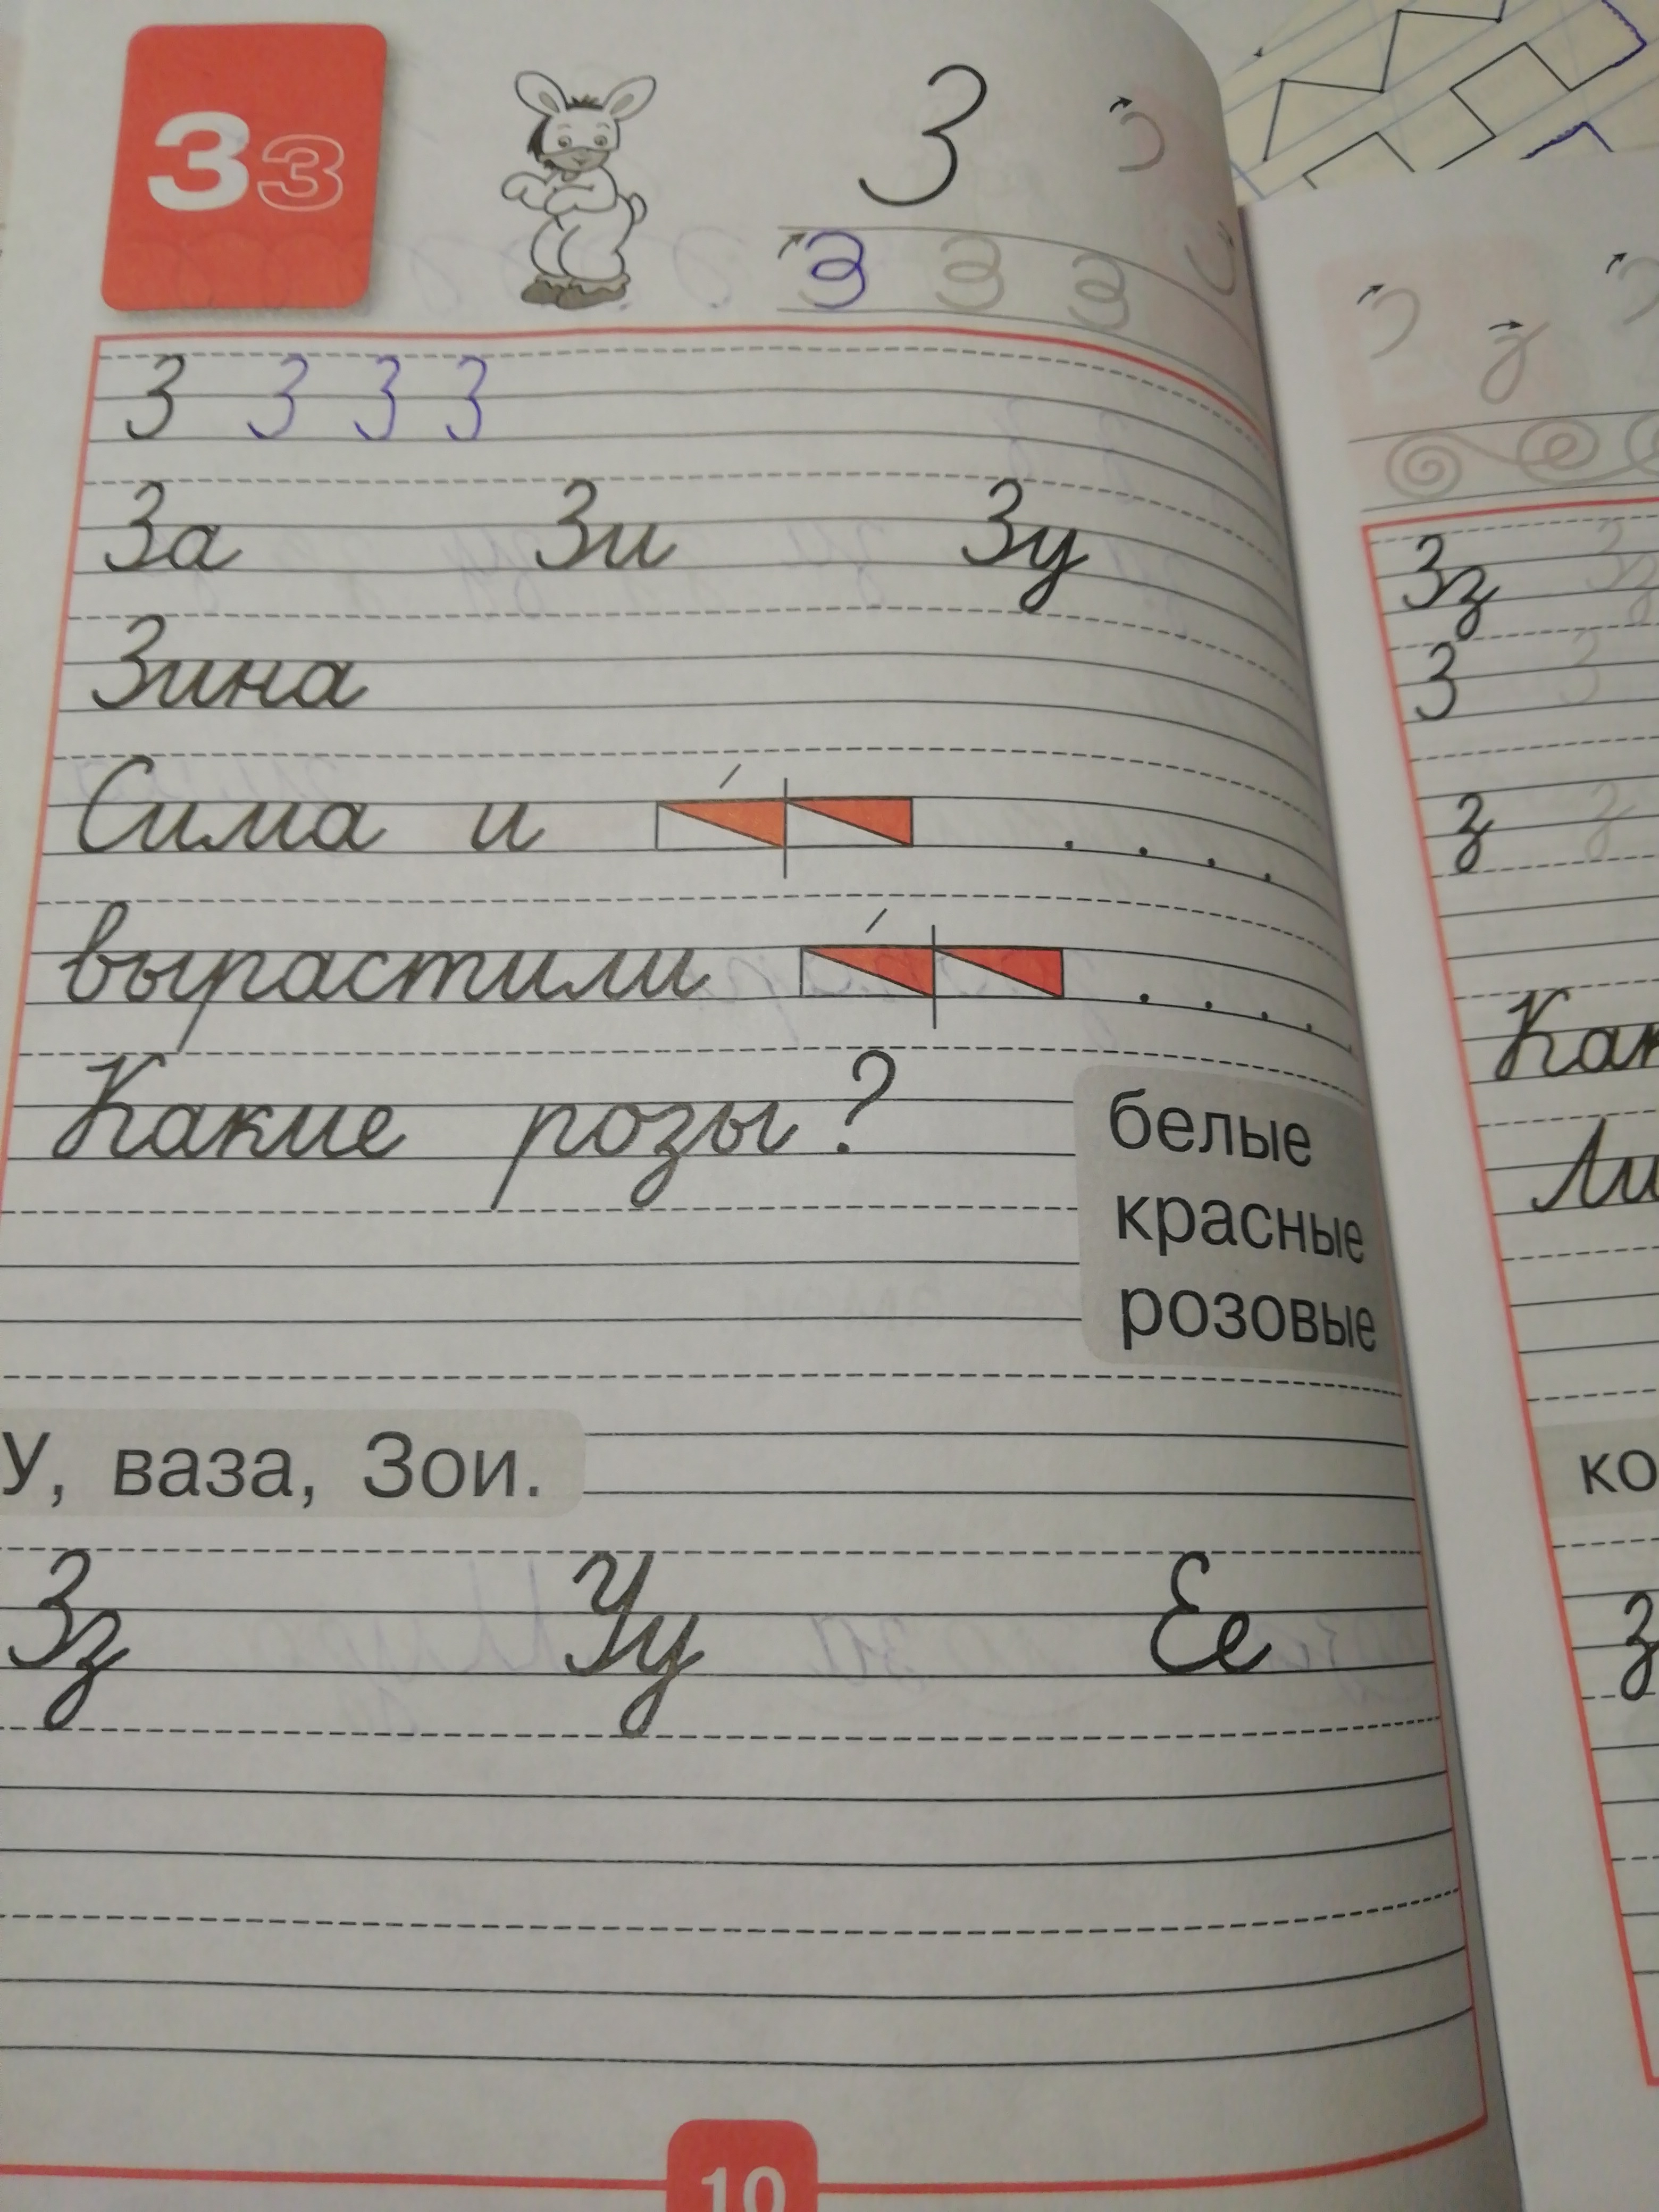 Зз
З
З З З
З З З З
За Зи Зу
Зина
Сима и . . . .
вырастили . . . .
Какие розы?
белые
красные
розовые
У, ваза, Зои.
Зз Уу Ее
10
Зз Зз
З З
з з
ко
з